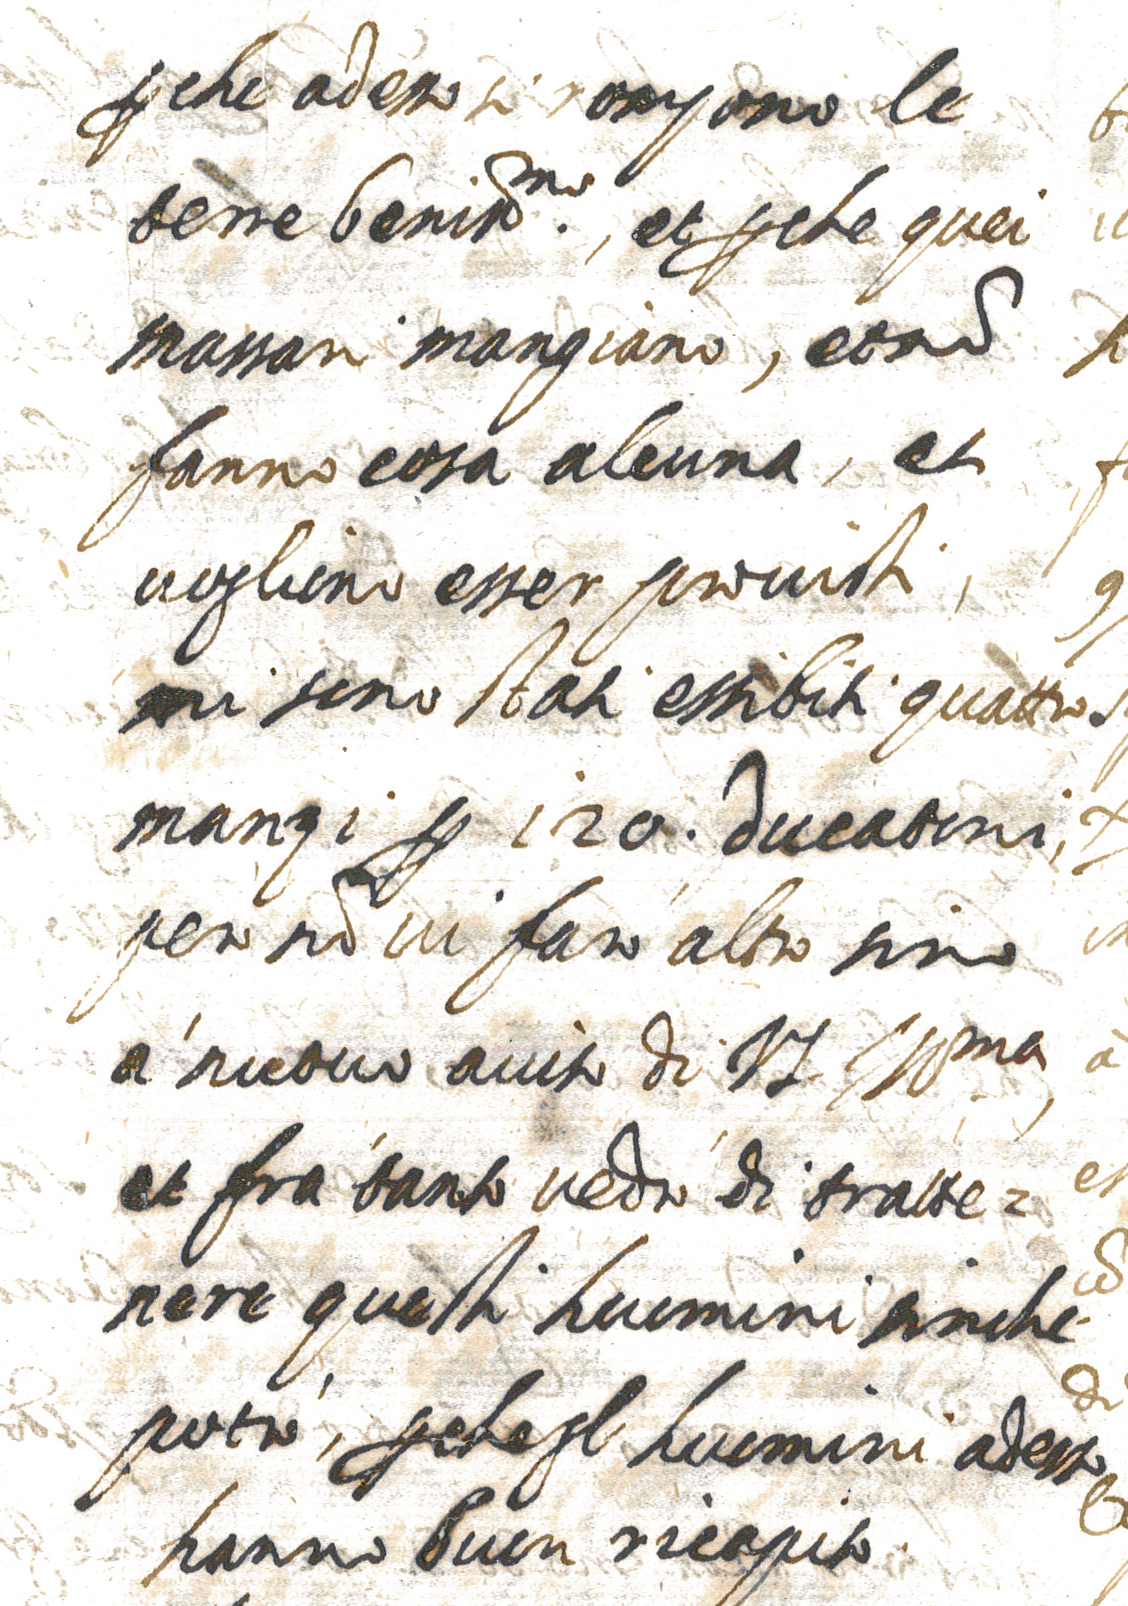 p che adesso si rompono le
terre beniss.mo, et p che quei
massari mangiano, et nõ
fanno cosa alcuna, et
uogliono esser prouisti,
mi sono stati essibiti quattro
manzi p 120. ducatoni,
però nõ ui farò altro sino
à nuouo auiso di VS Ill.ma,
et frà tanto uedrò di tratte=
nere questi huomini sinche
potrò, p che gl huomini adesso
hanno buon ricapito.